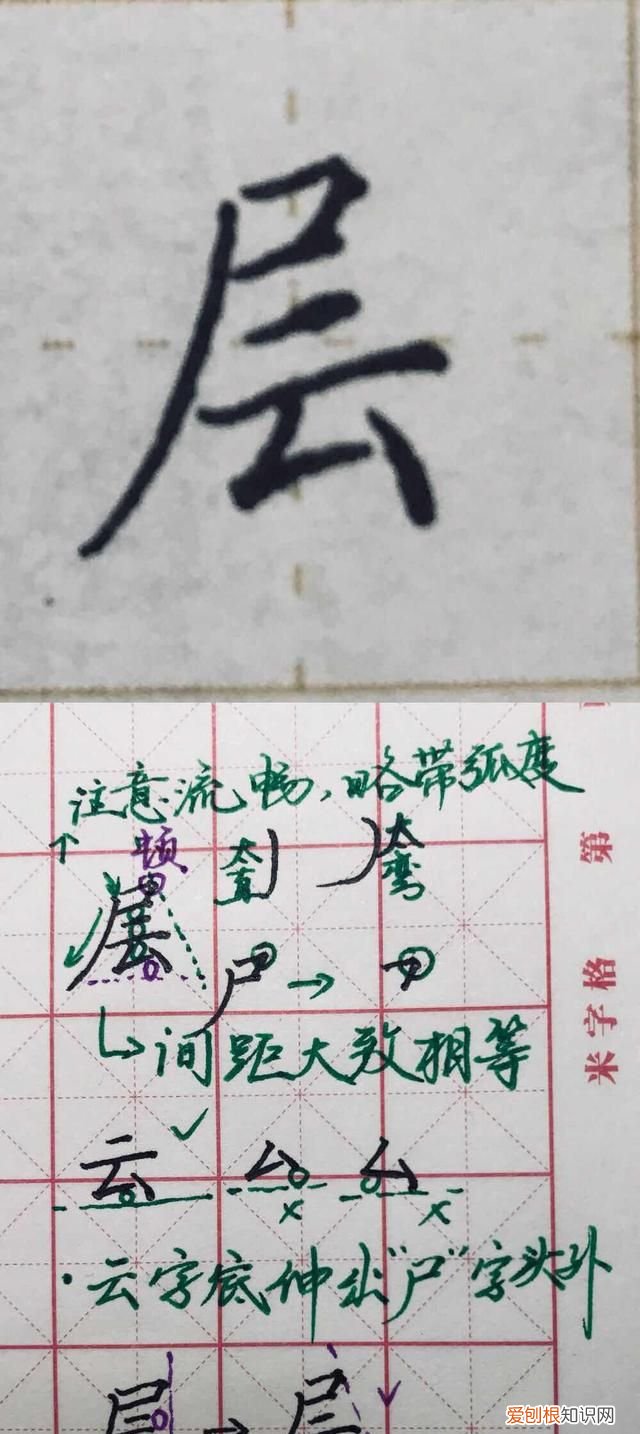 层
注意流畅，略带弧度
顿
太直
太弯
层
尸→
间距大致相等
云
·云字底伸出“尸”字头外
层→层
第
米字格
爱刨根知识网